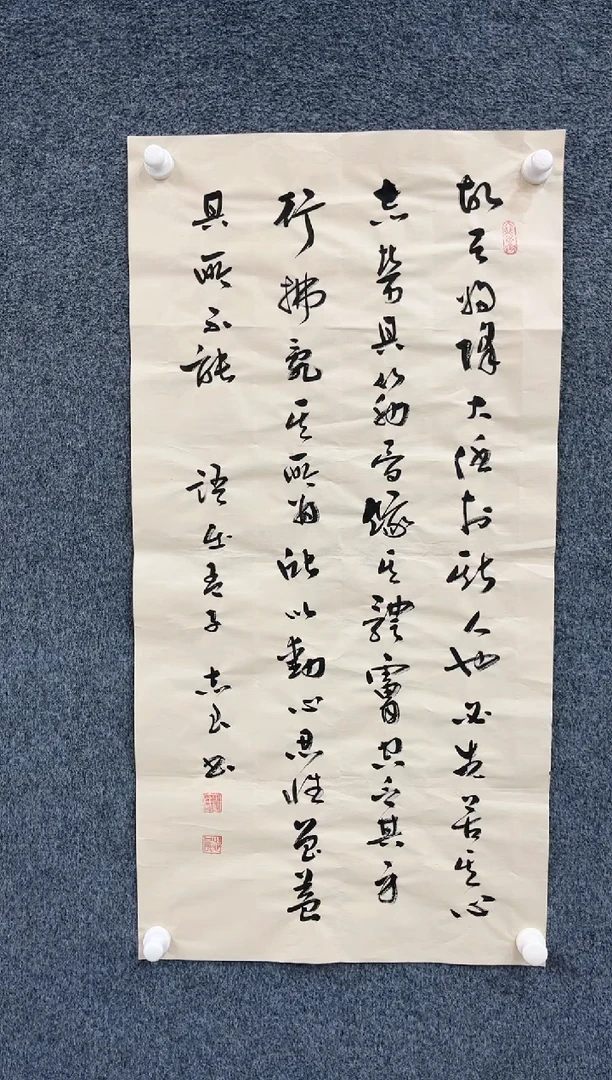 故天將降大任於斯人也必先苦其心
志勞其筋骨餓其體膚空乏其身
行拂亂其所為所以動心忍性曾益
其所不能 語出孟子 志書